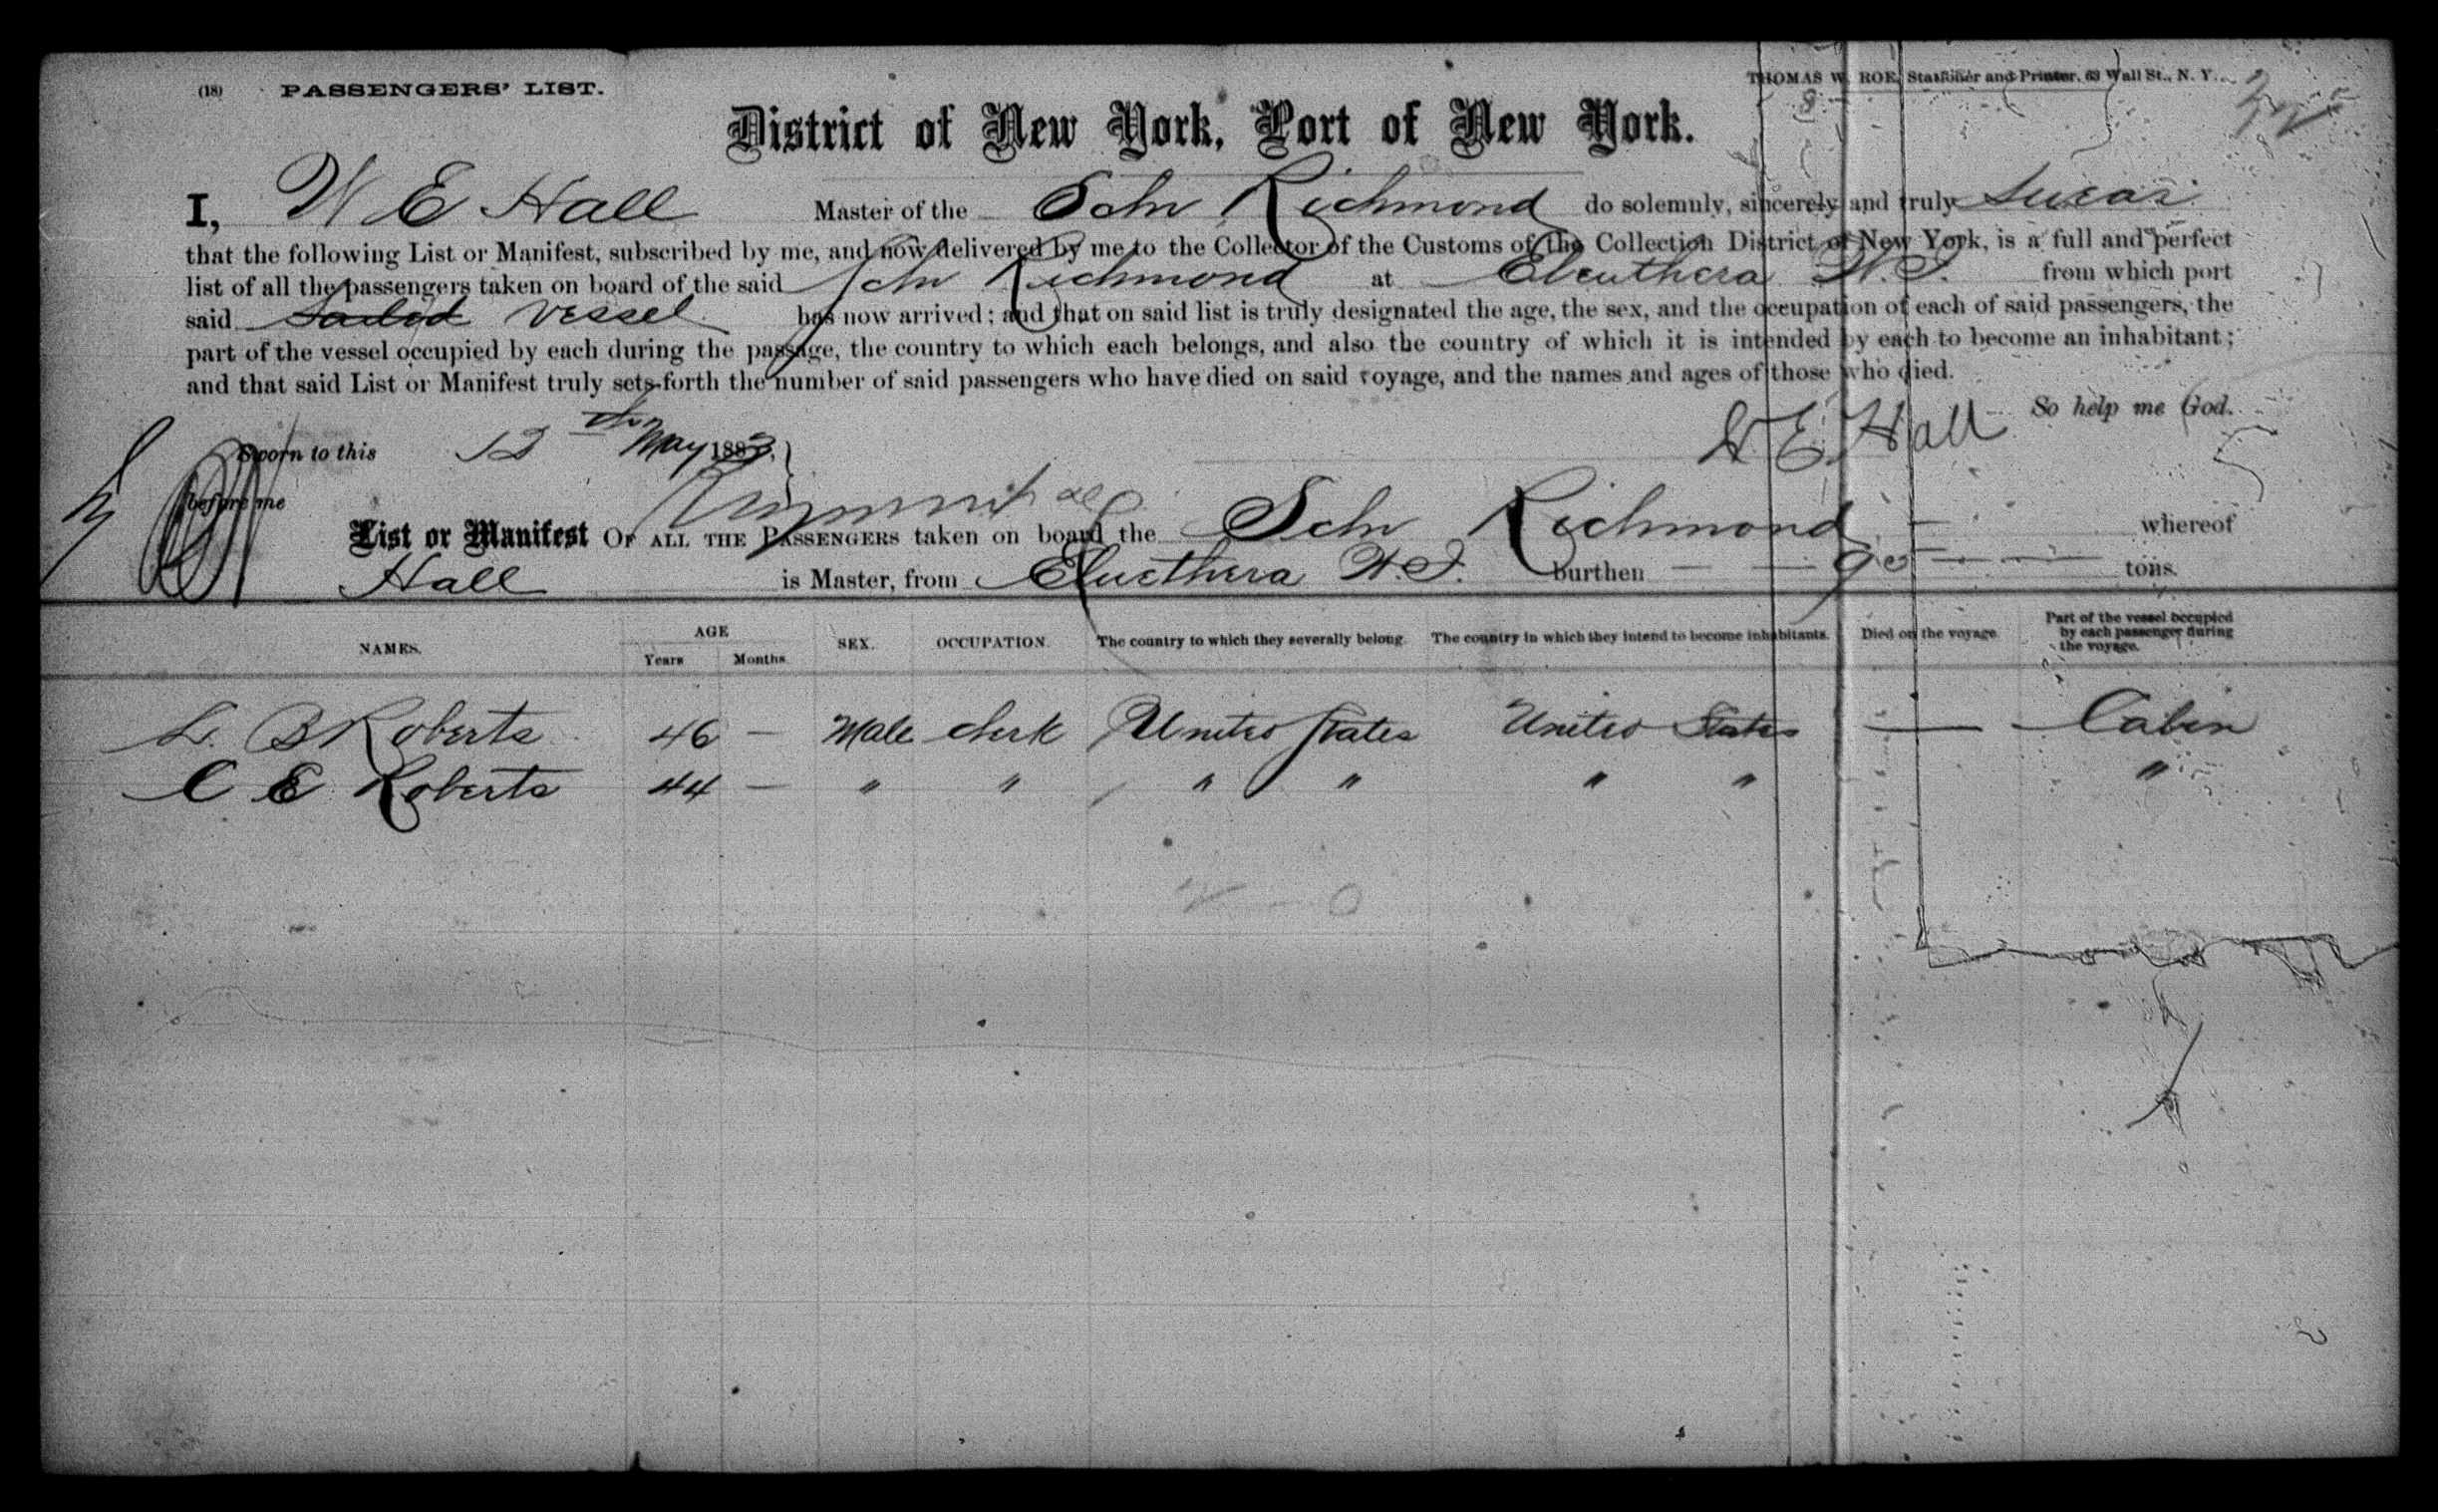 (18) PASSENGERS' LIST.
THOMAS W. ROE, Stationer and Printer, 63 Wall St., N. Y.
District of New York, Port of New York.
I, W E Hall Master of the Schr Richmond do solemnly, sincerely and truly Swear
that the following List or Manifest, subscribed by me, and now delivered by me to the Collector of the Customs of the Collection District of New York, is a full and perfect
list of all the passengers taken on board of the said Schr Richmond at Eleuthera W.I. from which port
said Sailed Vessel has now arrived; and that on said list is truly designated the age, the sex, and the occupation of each of said passengers, the
part of the vessel occupied by each during the passage, the country to which each belongs, and also the country of which it is intended by each to become an inhabitant;
and that said List or Manifest truly sets forth the number of said passengers who have died on said voyage, and the names and ages of those who died.
So help me God.
Sworn to this 12th May 1883,
W E Hall
before me
List or Manifest OF ALL THE PASSENGERS taken on board the Schr Richmond whereof
Hall is Master, from Eluethera W.I. burthen 90 tons.
NAMES. AGE Years Months. SEX. OCCUPATION. The country to which they severally belong. The country in which they intend to become inhabitants. Died on the voyage. Part of the vessel occupied by each passenger during the voyage.
L. B Roberts 46 — Male Clerk United States United States — Cabin
C E Roberts 44 — " " " " " " "